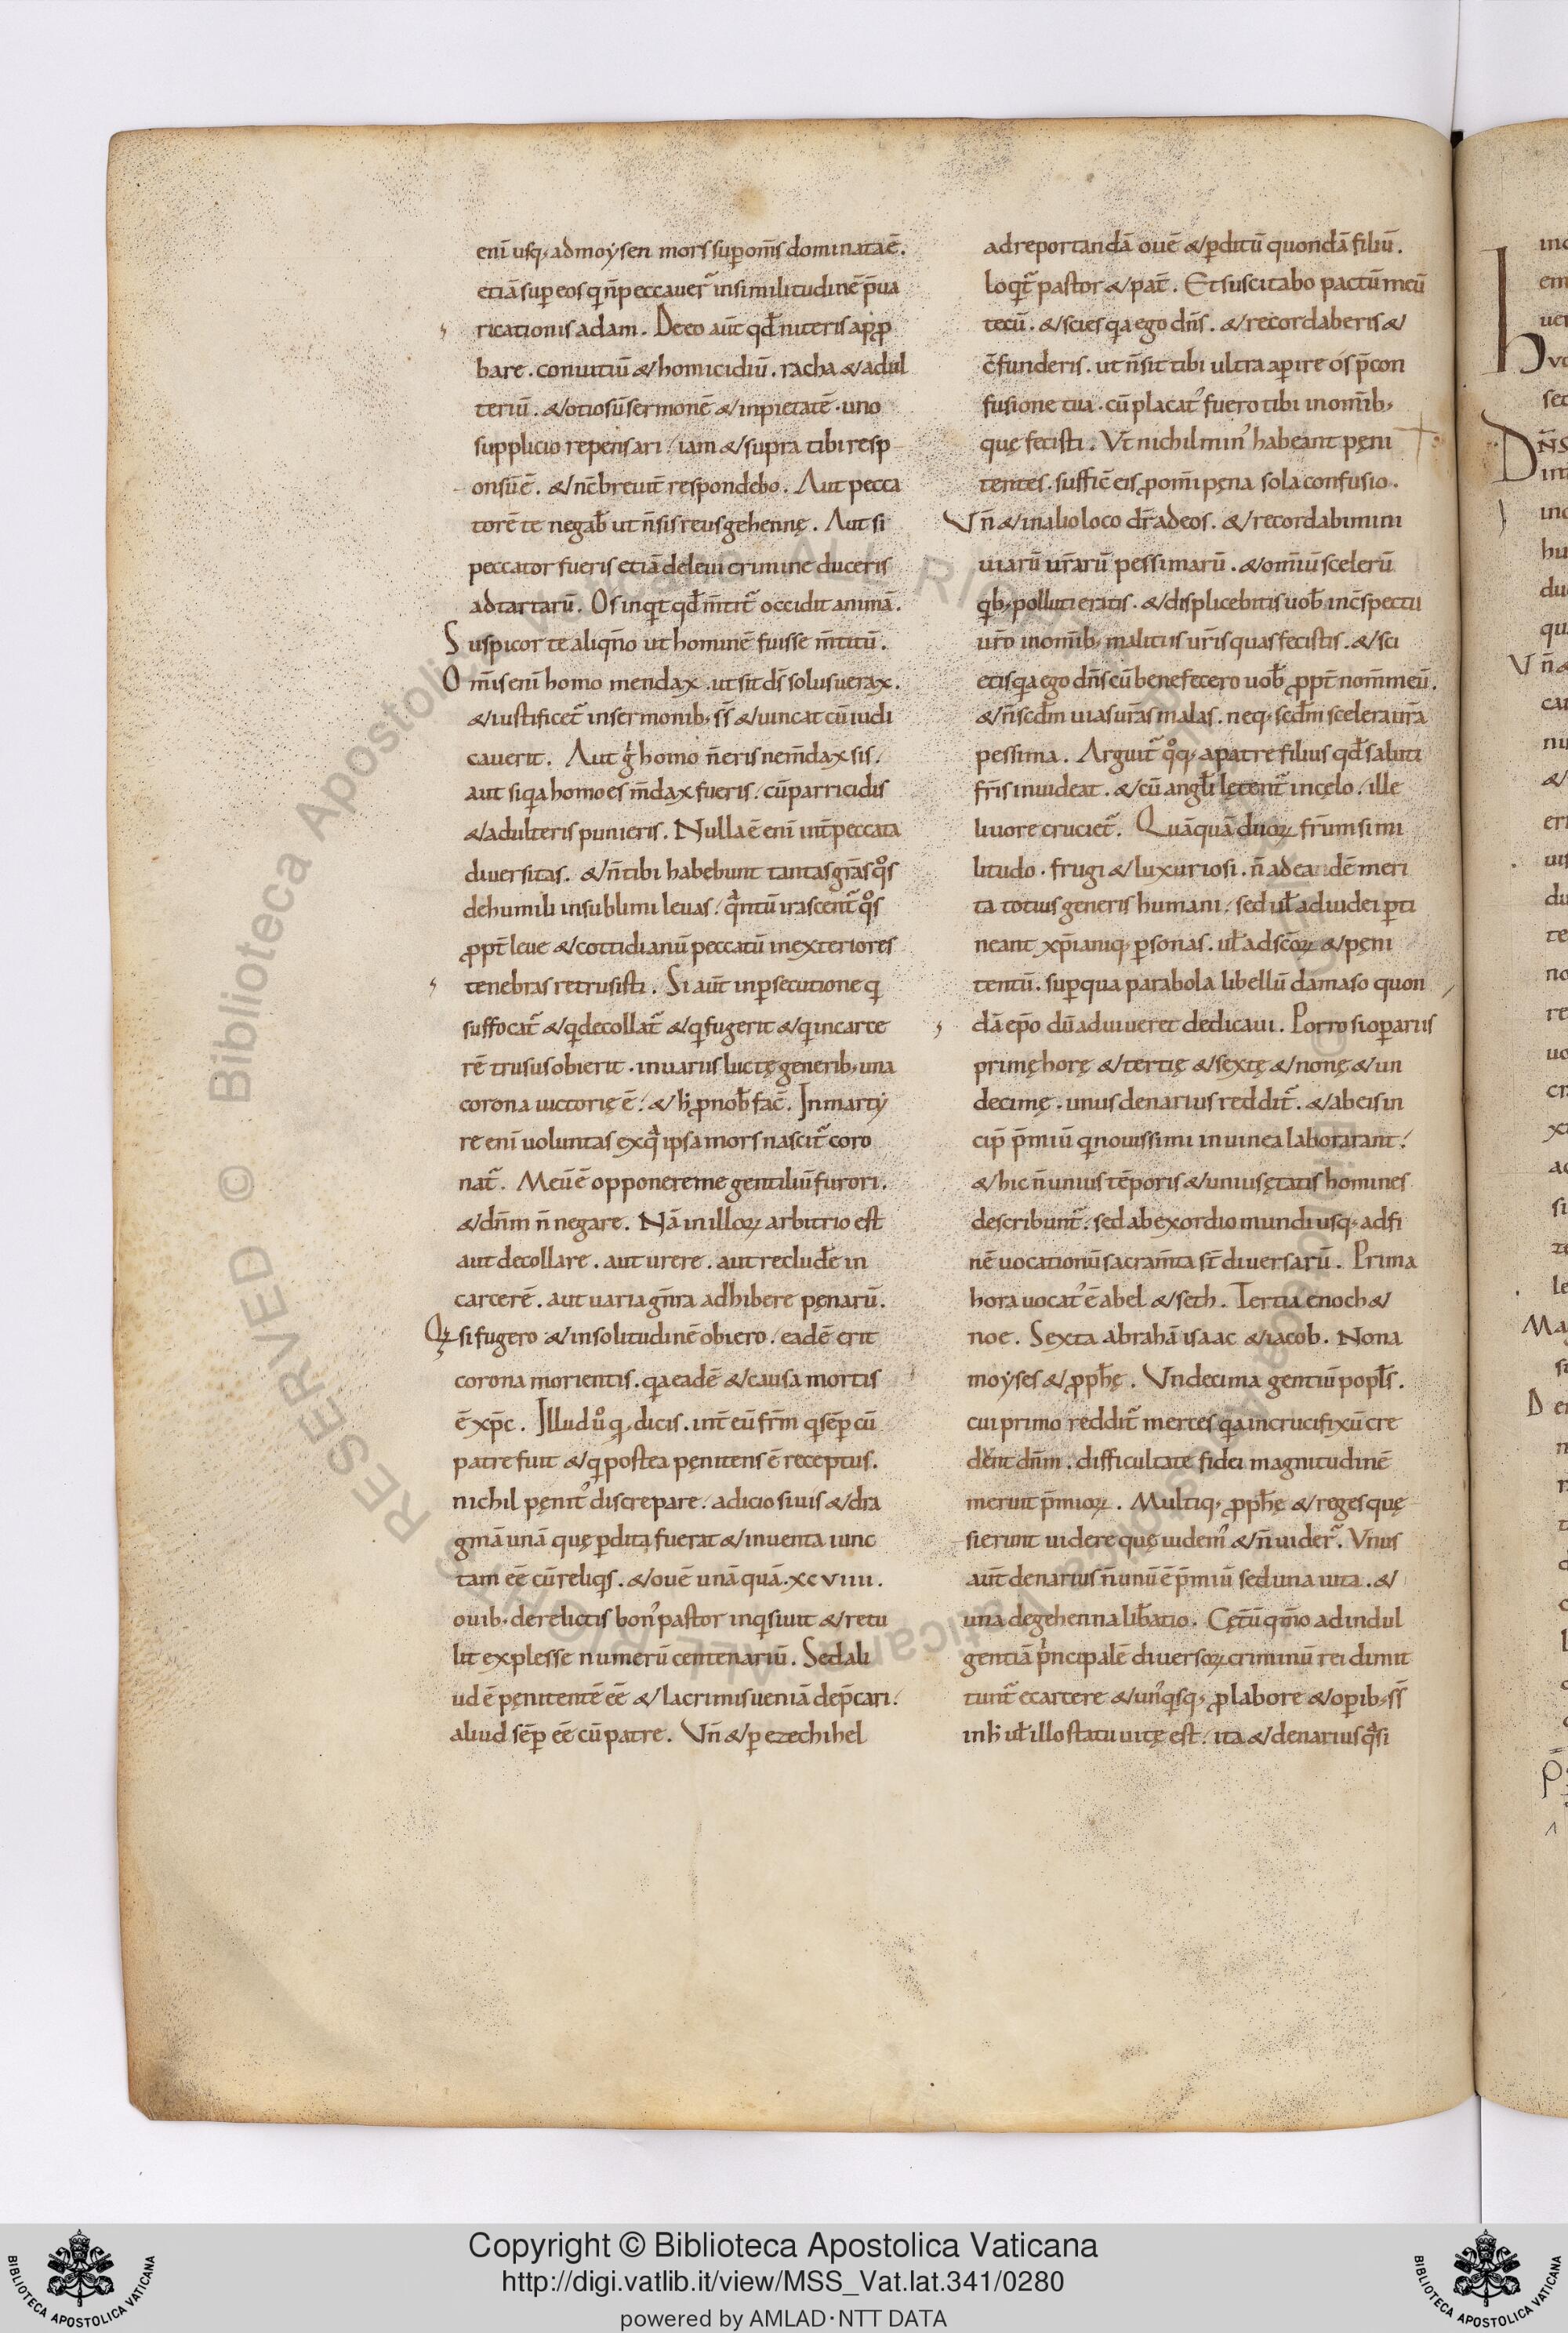 enī usq; ad moẏsen mors sup̱ om̄s dominata ē.
etiā sup̱ eos q̇ n̄ peccauer̄ in similitudinē p̄ua
ricationis adam. De eo aūt qd̄ niteris ap̱p̱
bare. conuitiū & homicidiū. racha & adul
teriū. & otiosū sermonē & inpietatē. uno
supplicio repensari. iam & supra tibi resp
onsū ē. & nc̄ breuit̄ respondebo. Aut pecca
torē te negab̄ ut n̄ sis reus gehennę. Aut si
peccator fueris etiā de leui crimine duceris
ad tartarū. Os inqt qd̄ m̄titr̄ occidit animā.
Suspicor te aliqn̄o ut hominē fuisse m̄titū.
Om̄is enī homo mendax. ut sit ds̄ solus uerax.
& iustificet̄ in sermonib; s̄s̄ & uincat cū iudi
cauerit. Aut g̊ homo n̄ eris ne m̄dax sis.
aut si qa homo es m̄dax fueris. cū parricidis
& adulteris punieris. Nulla ē enī int̄ peccata
diuersitas. & n̄ tibi habebunt tantas grās qo̊s
de humili in sublimi leuas. qa̓ntū irascent̄ qo̊s
ꝓpt̄ leue & cottidianū peccatū in exteriores
tenebras retrusisti. Si aūt in ꝑsecutione q
suffocat̄ & q decollat̄ & q fugerit & q in carce
rē trusus obierit. in uariis luctę generib; una
corona uictorię ē. & h̓ ꝓ nob̄ fac̄. In martẏ
re enī uoluntas ex qa̓ ipsa mors nascit̄ coro
nat̄. Meū ē opponere me gentiliū furori.
& dn̄m n̄ negare. Nā in illoꝝ arbitrio est
aut decollare. aut urere. aut recludē in
carcerē. aut uaria gn̄ra adhibere pęnarū.
Qꝫ si fugero & in solitudinē obiero. eadē erit
corona morientis. qa eadē & causa mortis
ē xp̄c. Illud u̓o q dicis. int̄ eū frm̄ q sēꝑ cū
patre fuit & q postea pęnitens ē receptus.
nichil pęnit᾽ discrepare. adicio si uis & dra
gmā unā quę ꝑdita fuerat & inuenta iunc
tam eē cū reliqs. & ouē unā quā. xc uiiii.
ouib; derelictis bon᾽ pastor inqsiuit & retu
lit explesse numerū centenariū. Sed ali
ud ē pęnitentē eē & lacrimis ueniā dep̄cari.
aliud sēꝑ eē cū patre. Vn̄ & ꝑ ezechihel
ad reportandā ouē & ꝑditū quondā filiū.
loqt̄ pastor & pat̄. Et suscitabo pactū meū
tecū. & scies qa ego dn̄s. & recordaberis &
c̄funderis. ut n̄ sit tibi ultra aꝑire ós p̄ con
fusione tua. cū placat᾽ fuero tibi in om̄ib;
quę fecisti. Vt nichil min᾽ habeant pęni
tentes. suffic̄ eis ꝓ om̄i pęna sola confusio.
Vn̄ & in alio loco dr̄ ad eos. & recordabimini
uiarū ur̄arū pessimarū. & om̄iū scelerū
qb; polluti eratis. & displicebitis uob̄ in c̄spectu
ur̄o in om̄ib; malitiis ur̄is quas fecistis. & sci
etis qa ego dn̄s cū benefecero uob̄ ꝓpt̄ nom̄ meū.
& n̄ scd̄m uias ur̄as malas. neq; scd̄m scelera ur̄a
pessima. Arguit̄ qo̊q; a patre filius qd̄ saluti
fr̄is inuideat. & cū angl̄i lętent̄ in cęlo. ille
liuore cruciet̄. Quāquā duoꝝ fr̄um simi
litudo. frugi & luxuriosi. n̄ ad eandē meri
ta totius generis humani. sed ul̄ ad iudei ꝑti
neant xp̄ianiq; ꝑsonas. ul̄ ad sc̄oꝝ & pęni
tentū. suꝑ qua parabola libellū damaso quon
dā ep̄o dū adiuiueret dedicaui. Porro si oꝑariis
primę horę & tertię & sextę & nonę & un
decimę. unus denarius reddit̄. & ab eis in
cip̄ p̄miū q nouissimi in uinea laborarant.
& hic n̄ unius tēporis & unius ętatis homines
describunt̄. sed ab exordio mundi usq; ad fi
nē uocationū sacram̄ta st̄ diuersarū. Prima
hora uocat᾽ ē abel & seth. Tertia enoch &
noe. Sexta abrahā isaac & iacob. Nona
moẏses & ꝓph̄ę. Vndecima gentiū popl̄s.
cui primo reddit̄ merces qa in crucifixū cre
dent dn̄m. difficultate fidei magnitudinē
meruit p̄mioꝝ. Multiq; ꝓph̄ę & reges quę
sierunt uidere quę uidem᾽ & n̄ uider̄. Vnus
aūt denarius n̄ unū ē p̄miū sed una uita. &
una de gehenna lib̄atio. Cętū qm̄o ad indul
gentiā p̓ncipalē diuersoꝝ criminū rei dimit
tunt̄ e carcere & un᾽qsq; ꝓ labore & oꝑib; s̄s̄
in h̓ ul̄ illo statu uitę est. ita & denarius qa̓si
Copyright © Biblioteca Apostolica Vaticana
http://digi.vatlib.it/view/MSS_Vat.lat.341/0280
powered by AMLAD·NTT DATA